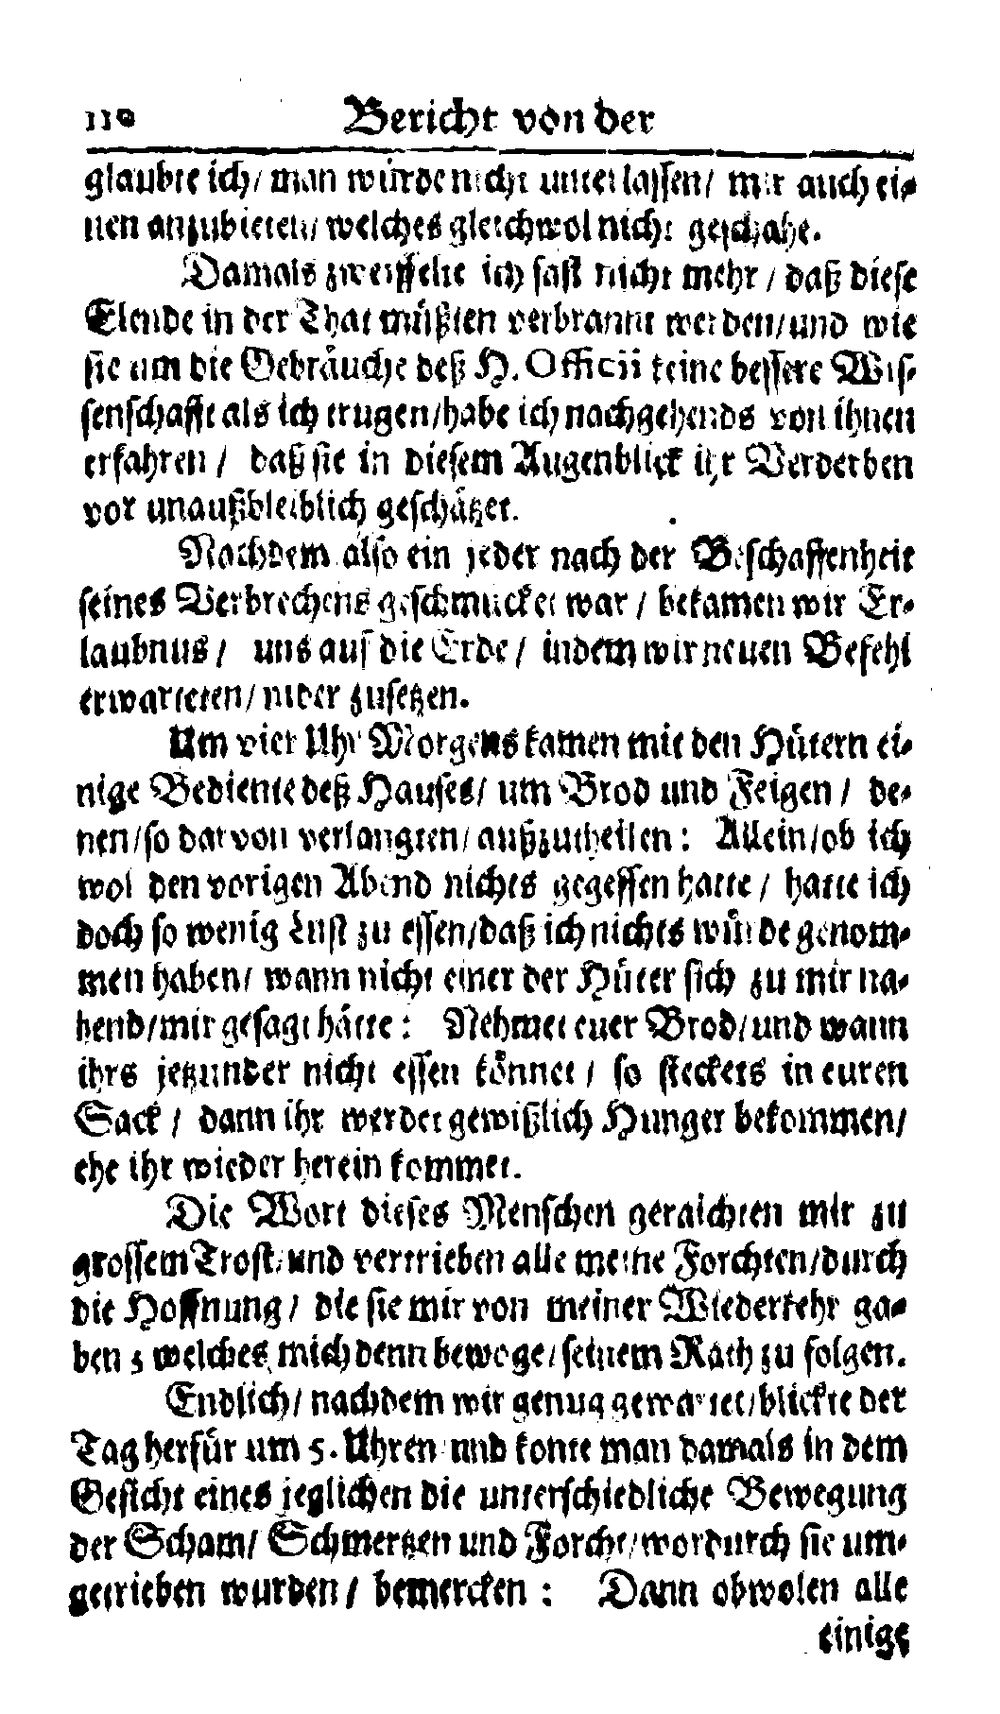 110 Bericht von der
glaubte ich/ man würde nicht unterlassen/ mir auch ei-
nen anzubieten/ welches gleichwol nicht geschahe.
Damals zweiffelte ich fast nicht mehr/ daß diese
Elende in der That müßten verbrannt werden/ und wie
sie um die Gebräuche deß H. Officii keine bessere Wis-
senschafft als ich trugen/ habe ich nachgehends von ihnen
erfahren/ daß sie in diesem Augenblick ihr Verderben
vor unaußbleiblich geschätzet.
Nachdem also ein jeder nach der Beschaffenheit
seines Verbrechens geschmucket war/ bekamen wir Er-
laubnus/ uns auf die Erde/ indem wir neuen Befehl
erwarteten/ nider zusetzen.
Um vier Uhr Morgens kamen mit den Hütern ei-
nige Bediente deß Hauses/ um Brod und Feigen/ de-
nen/ so darvon verlangten/ außzutheilen: Allein/ ob ich
wol den vorigen Abend nichts gegessen hatte/ hatte ich
doch so wenig Lust zu essen/ daß ich nichts würde genom-
men haben/ wann nicht einer der Hüter sich zu mir na-
hend/ mir gesagt hätte: Nehmet euer Brod/ und wann
ihrs jetzunder nicht essen könnet/ so steckets in euren
Sack/ dann ihr werdet gewißlich Hunger bekommen/
ehe ihr wieder herein kommet.
Die Wort dieses Menschen geraichten mir zu
grossem Trost/ und vertrieben alle meine Forchten/ durch
die Hoffnung/ die sie mir von meiner Wiederkehr ga-
ben; welches mich denn bewoge/ seinem Rath zu folgen.
Endlich/ nachdem wir genug gewartet/ blickte der
Tag herfür um 5. Uhren und konte man damals in dem
Gesicht eines jeglichen die unterschiedliche Bewegung
der Scham/ Schmertzen und Forcht/ wordurch sie um-
getrieben wurden/ bemercken: Dann obwolen alle
einige